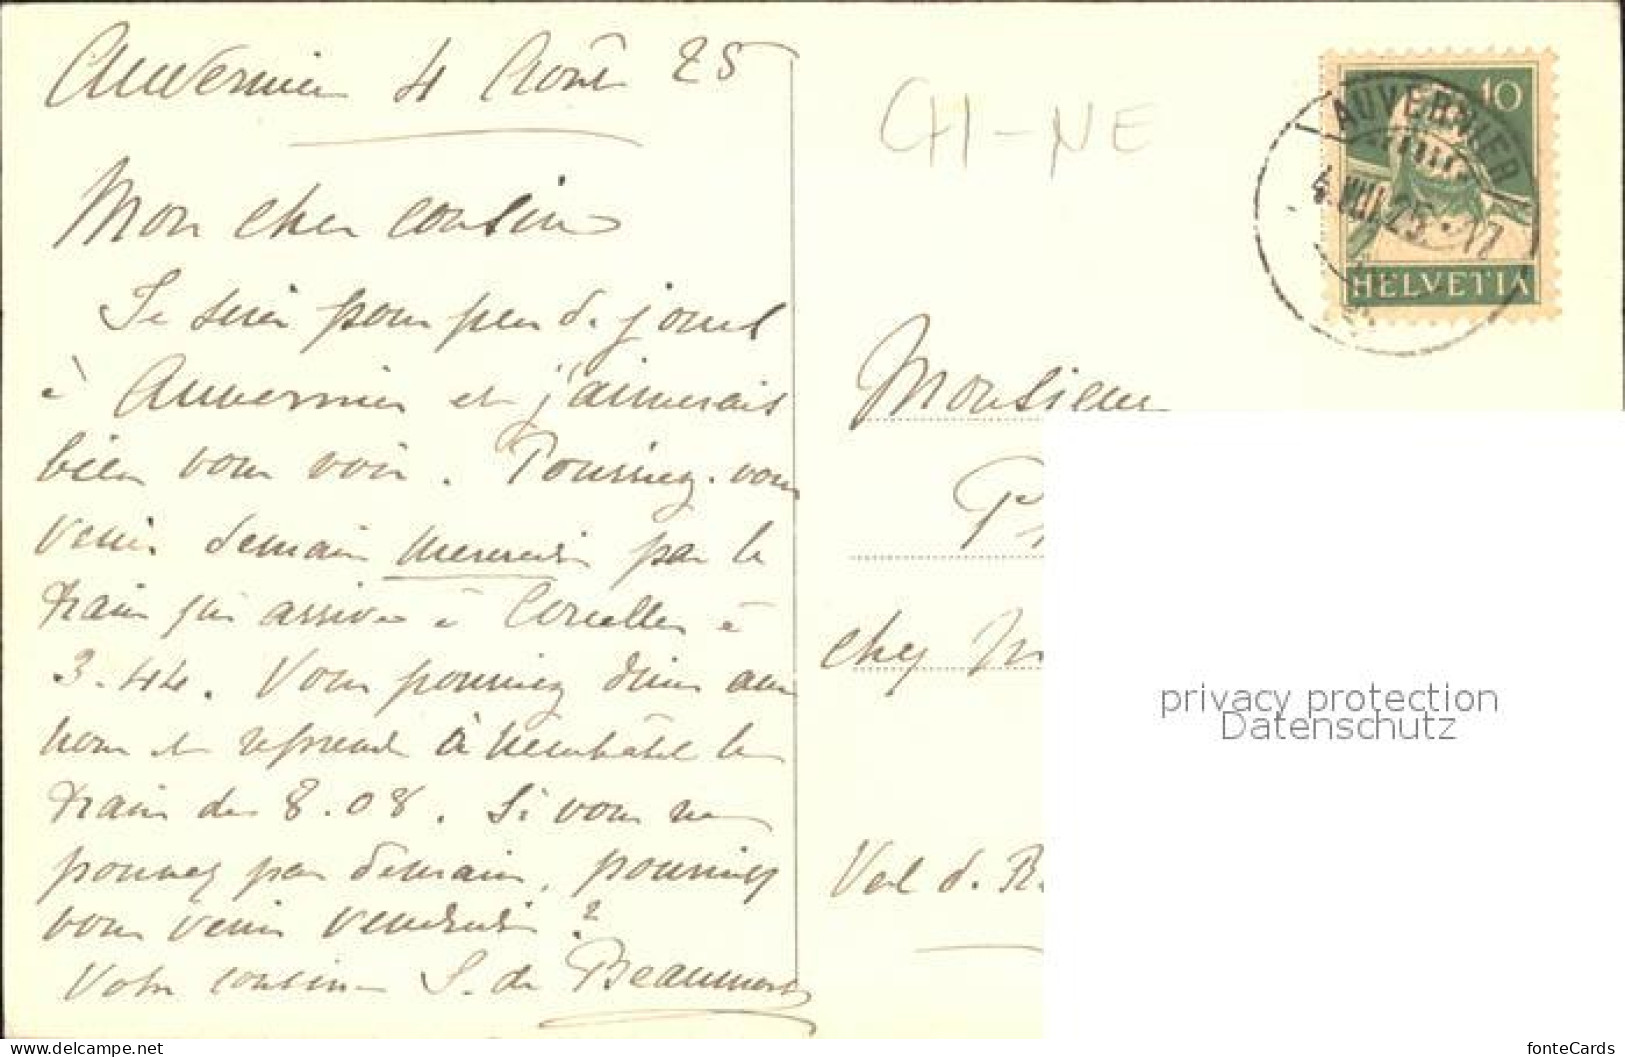 Auvernier 4 Août 25
Mon cher cousin
Je suis pour peu de jours
à Auvernier et j'aimerais
bien vous voir. Pourriez-vous
venir demain mercredi par le
train qui arrive à Corcelles à
3.44. Vous pourriez diner avec
nous et reprendre à Neuchâtel le
train de 8.08. Si vous ne
pouvez pas demain, pourriez
vous venir vendredi?
Votre cousin S. de Beaumont
CH-NE
10
AUVERNIER
4.VIII.25.-17
HELVETIA
Monsieur
chez M
Val de R
privacy protection
Datenschutz
www.delcampe.net
fonteCards